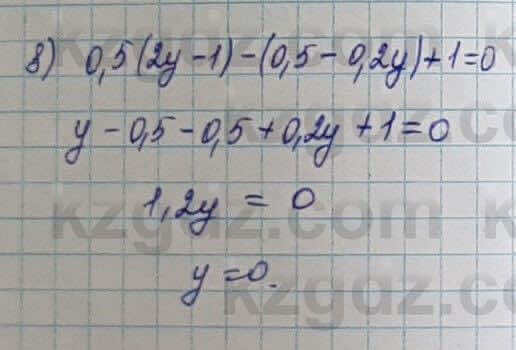 8) 0,5(2y-1)-(0,5-0,2y)+1=0
y-0,5-0,5+0,2y+1=0
1,2y=0
y=0.
kzgdz.com